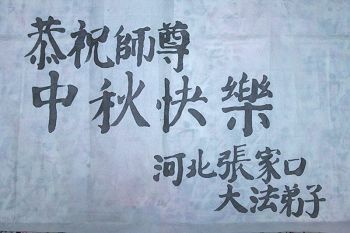 恭祝師尊
中秋快樂
河北張家口
大法弟子